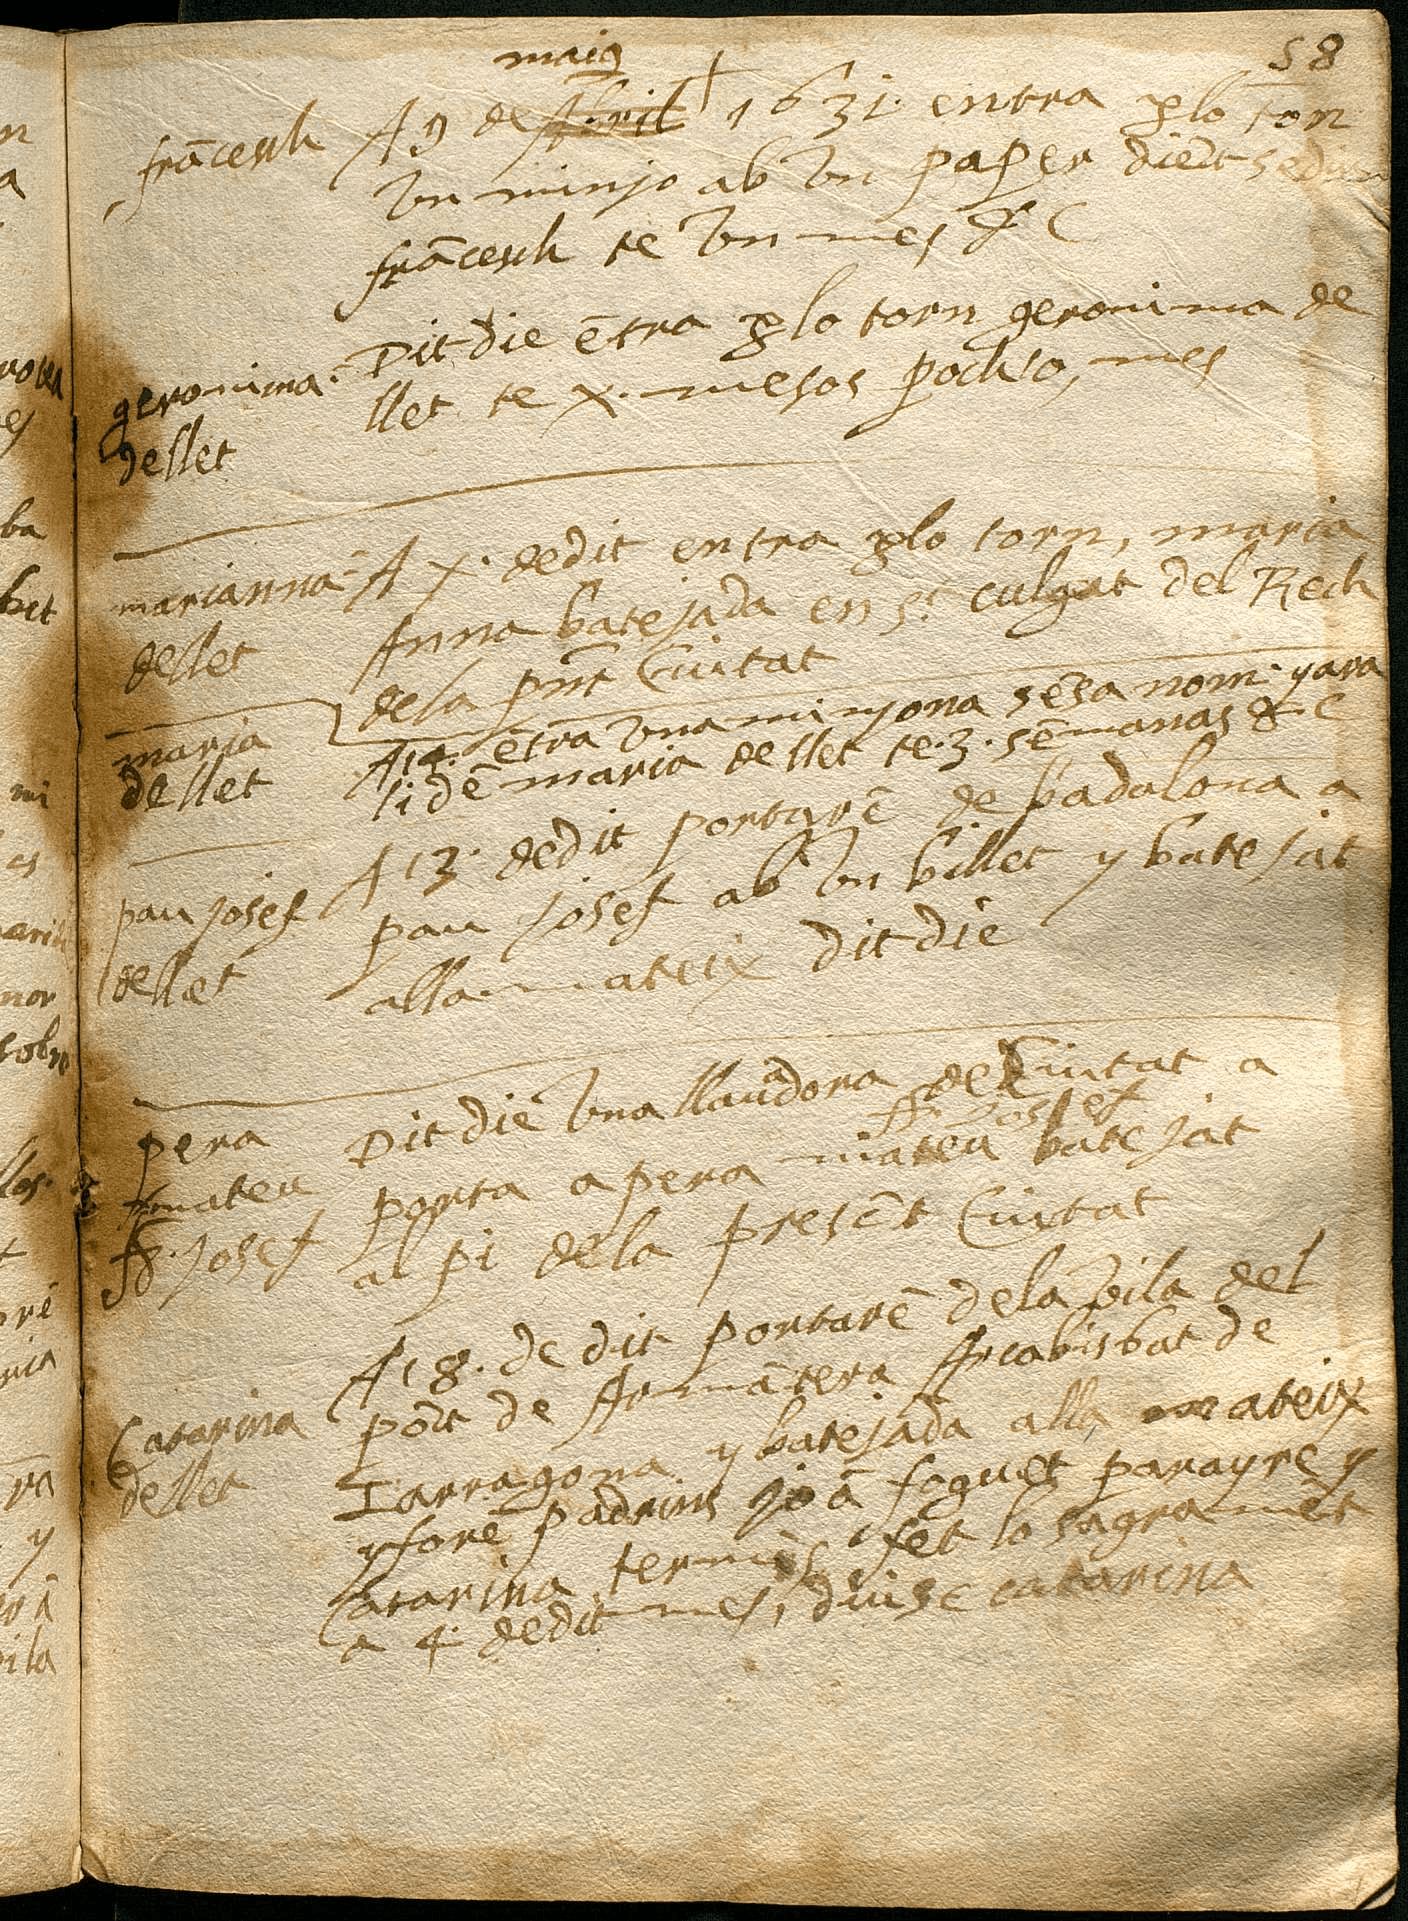 58
maig
francesch A 9 de Abril 1631. entra p lo torn
Un minjo ab Un paper dient se diu
francesch te Un mes &c
geronima dellet
Dit die ētra p lo torn geronima de
llet te x. mesos poch so, mes
marianna dellet
A x. dedit entra p lo torn, maria
Anna batejada en St culgat del Rech
dela pnt Ciutat
maria dellet
A 12. ētra Una minyona sēsa nom y ara
li dē maria dellet te .3. sēmanas &c
pau josef dellet
A 13. dedit portarē de badalona a
pau josef ab Un billet y batejat
alla mateix dit die
pera mateu fr. Josef
Dit die Una llauadora de Ciutat a
fr. Josef
porta a pera mateu batejat
al pi dela presēt Ciutat
Catarina dellet
A 18. de dit portarē dela Vila del
pōt de Armātera Arcabisbat de
Tarragona y batejada alla mateix
y forē padrins joā foguet parayre y
Catarina termēs fet lo sagramēt
a 4. dedit mes, diuse catarina